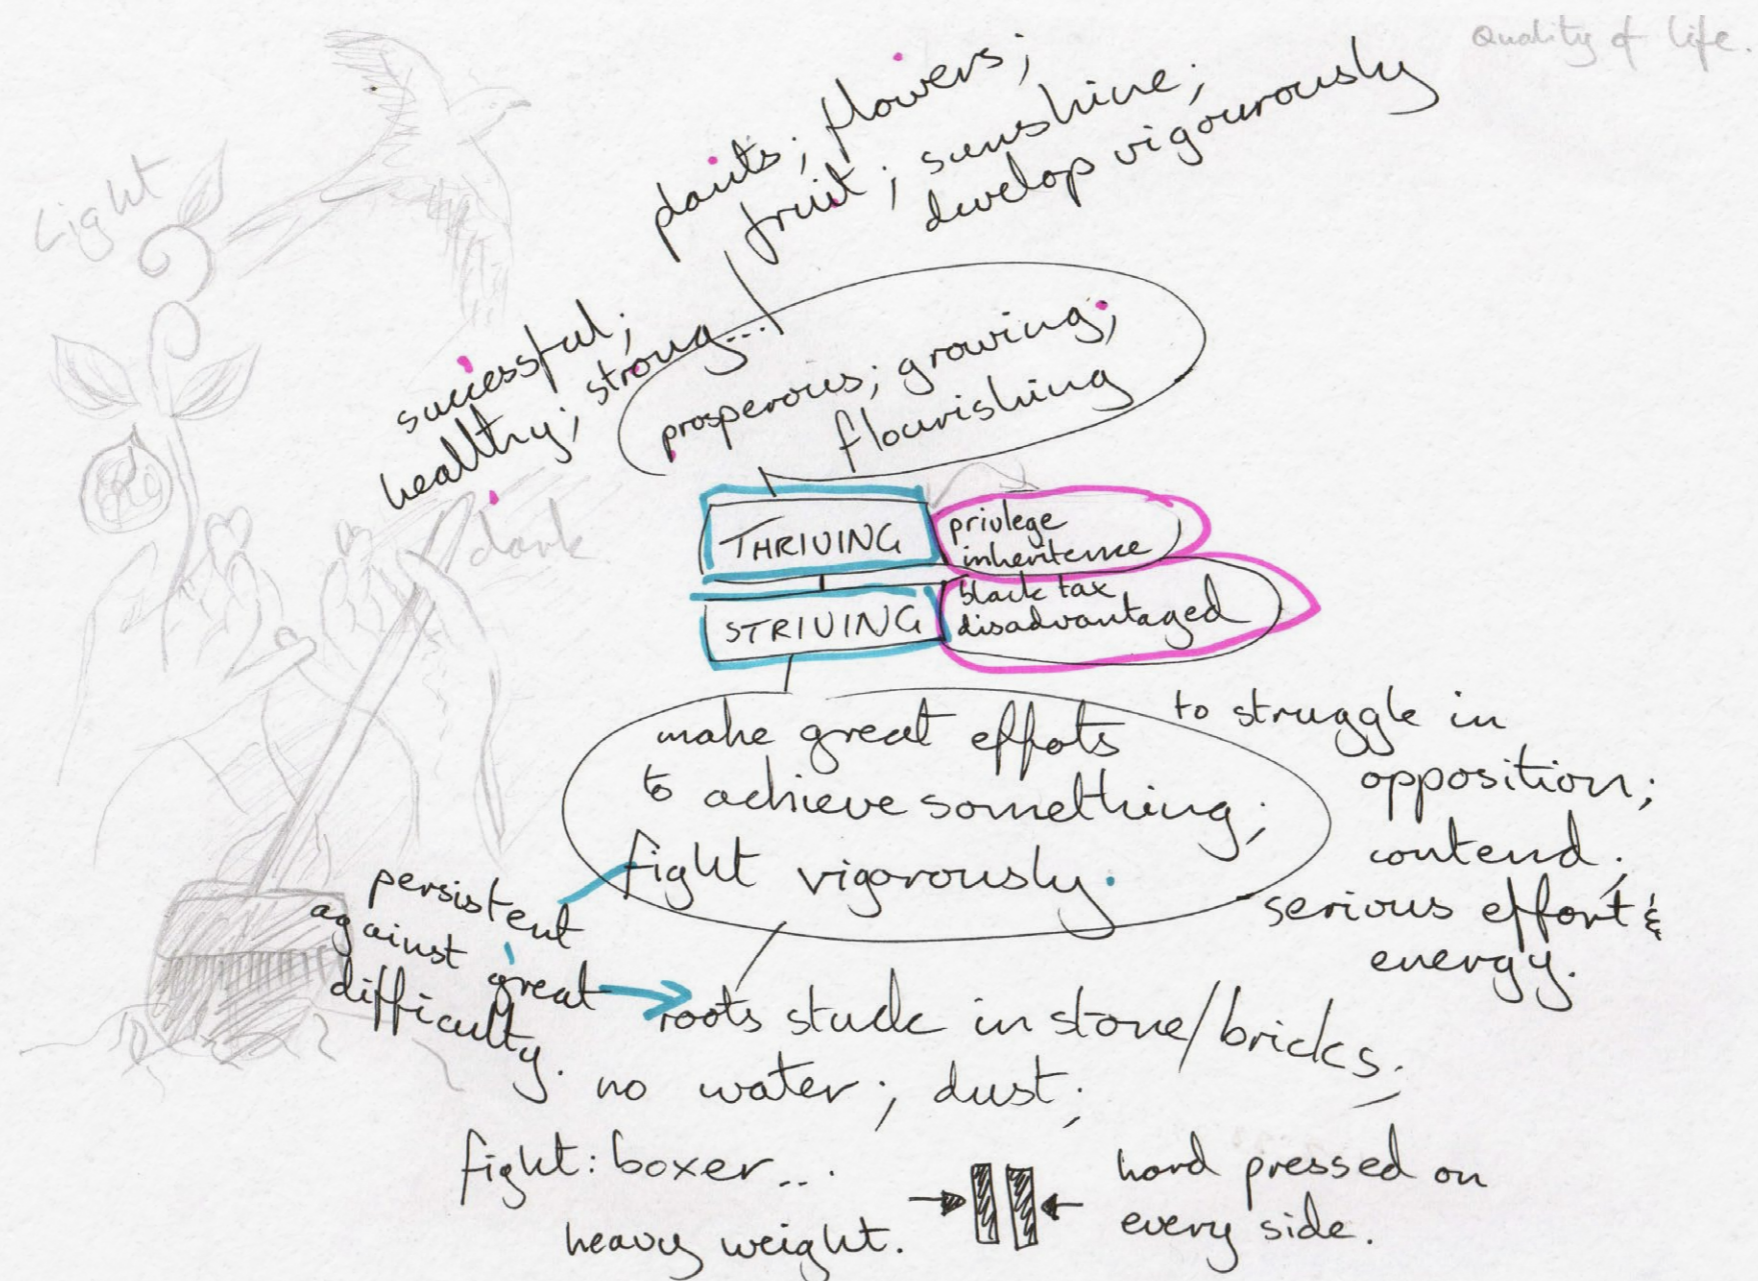 Quality of life.
plants; flowers;
fruit; sunshine;
develop vigourously
Light
successful;
healthy; strong...
prosperous; growing;
flourishing
dark
THRIVING
privlege
inheritence
STRIVING
black tax
disadvantaged
make great effots
to achieve something;
fight vigorously.
to struggle in
opposition;
contend;
serious effort &
energy.
persistent
against great
difficulty.
roots stuck in stone/bricks;
no water; dust;
fight: boxer...
heavy weight.
hard pressed on
every side.